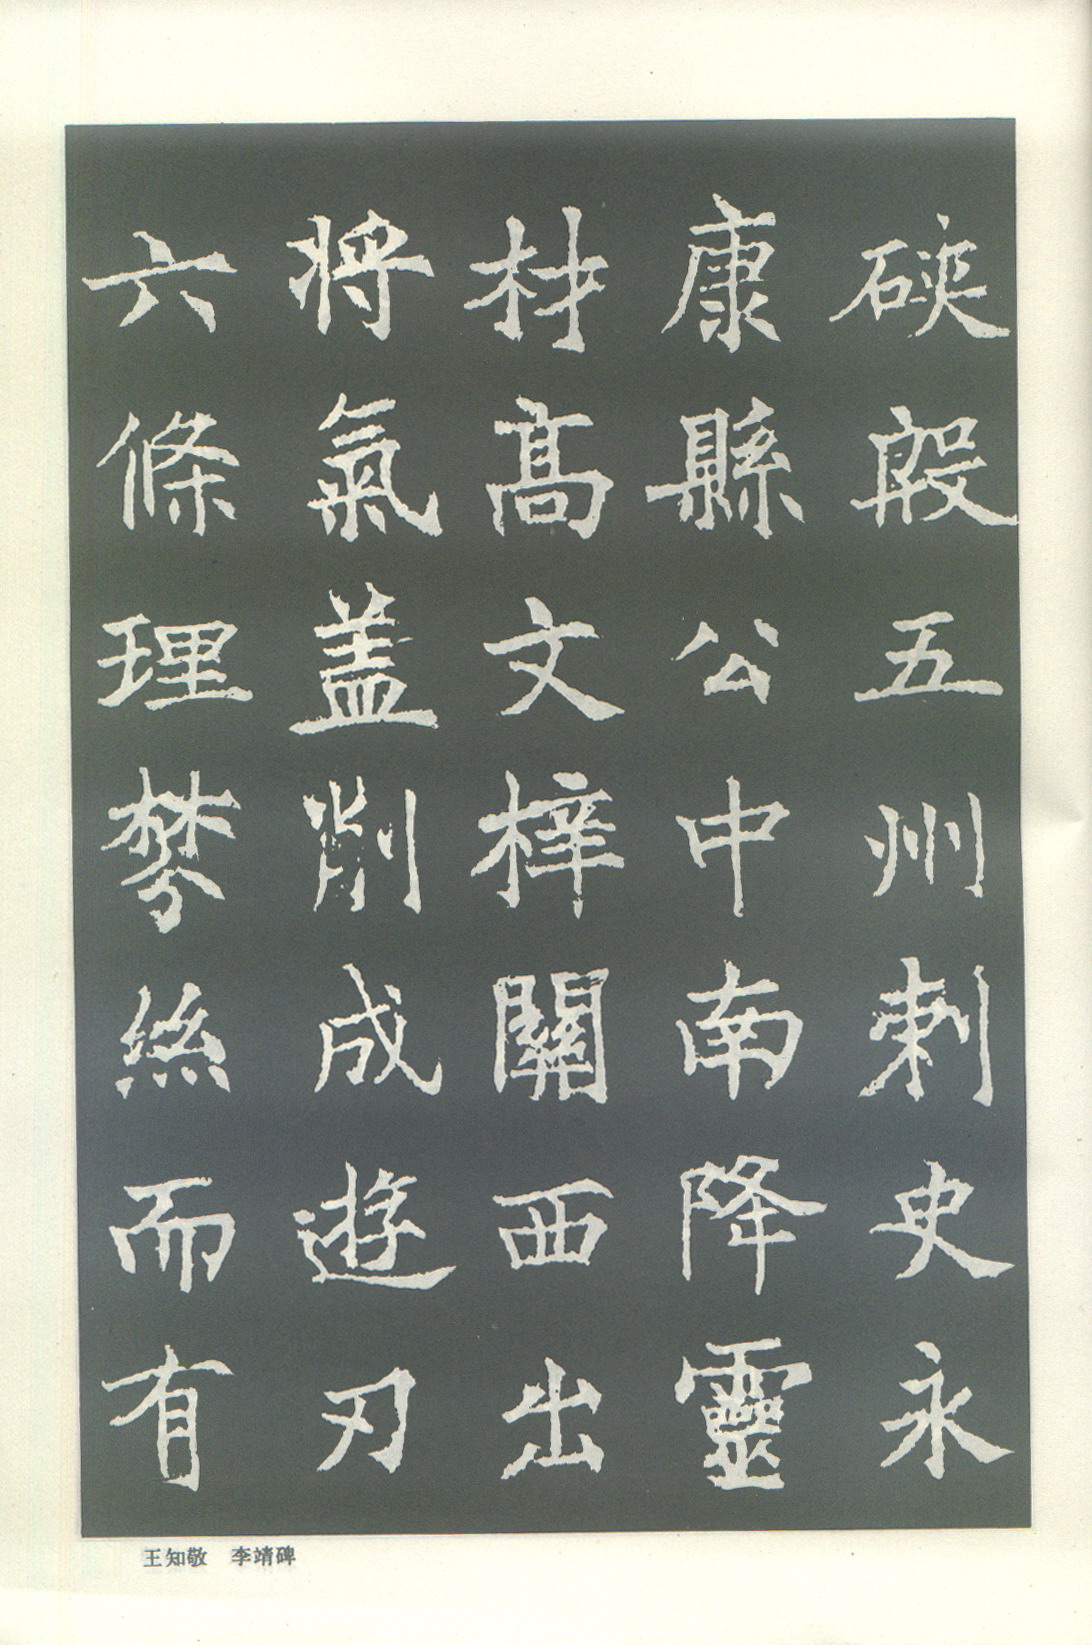 硤殷五州刺史永
康縣公中南降靈
材髙文梓關西出
將氣盖削成遊刃
六條理棼絲而有
王知敬 李靖碑